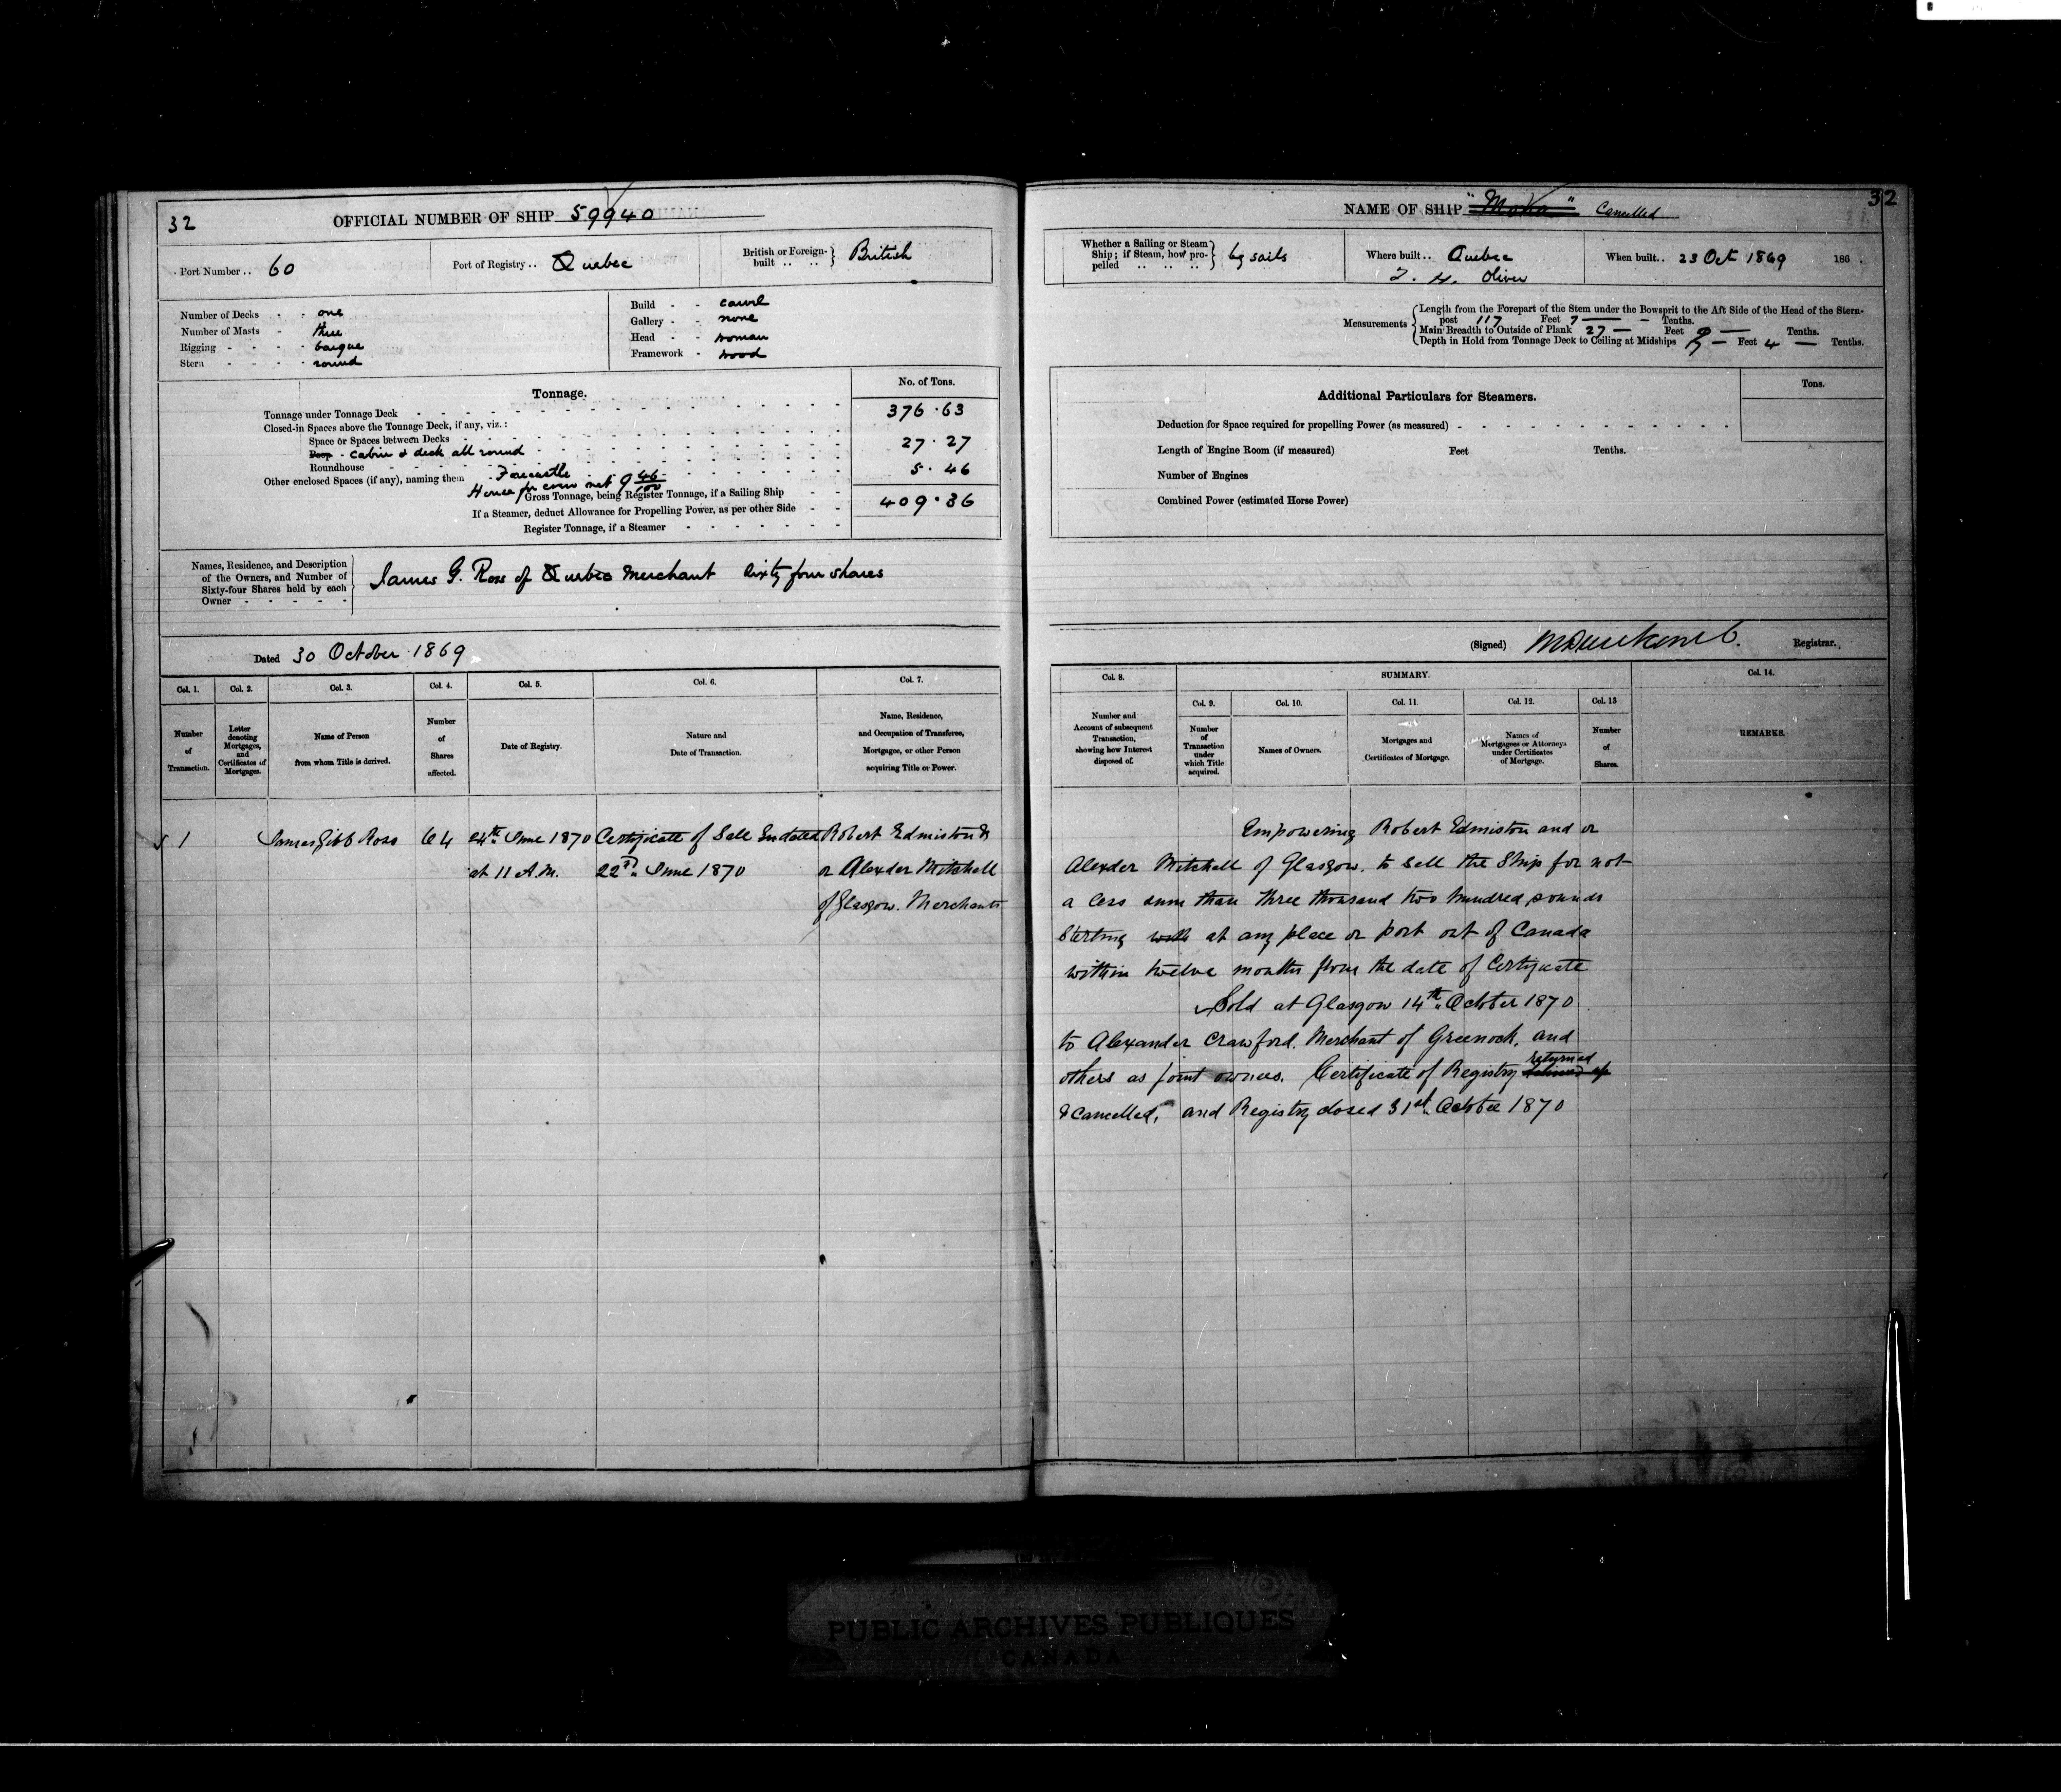 32
OFFICIAL NUMBER OF SHIP 59940
Port Number .. 60
Port of Registry .. Quebec
British or Foreign-built .. .. British
Number of Decks - - one
Number of Masts - three
Rigging - - - - barque
Stern - - - - round
Build - - carvel
Gallery - - none
Head - - woman
Framework - wood
Tonnage.
No. of Tons.
Tonnage under Tonnage Deck 376.63
Closed-in Spaces above the Tonnage Deck, if any, viz.:
Space or Spaces between Decks
Poop - cabin & deck all round 27.27
Roundhouse
Other enclosed Spaces (if any), naming them Forecastle 5.46
House for crew 9 46/100
Gross Tonnage, being Register Tonnage, if a Sailing Ship 409.36
If a Steamer, deduct Allowance for Propelling Power, as per other Side
Register Tonnage, if a Steamer
Names, Residence, and Description
of the Owners, and Number of
Sixty-four Shares held by each
Owner
James G. Ross of Quebec Merchant sixty four shares
Dated 30 October 1869
Col. 1. Col. 2. Col. 3. Col. 4. Col. 5. Col. 6. Col. 7.
Number of Transaction.
Letter denoting Mortgages, and Certificates of Mortgages.
Name of Person from whom Title is derived.
Number of Shares affected.
Date of Registry.
Nature and Date of Transaction.
Name, Residence, and Occupation of Transferee, Mortgagee, or other Person acquiring Title or Power.
1 James Gibb Ross 64 24th June 1870 Certificate of Sale dated Robert Edmiston &
at 11 A.M. 22nd June 1870 or Alexder Mitchell
of Glasgow. Merchants
32
NAME OF SHIP "Moka" Cancelled
Whether a Sailing or Steam
Ship; if Steam, how pro-
pelled
by sails
Where built .. Quebec
T. H. Oliver
When built .. 23 Oct 1869 186 .
Measurements
Length from the Forepart of the Stem under the Bowsprit to the Aft Side of the Head of the Stern-
post 117 Feet 7 Tenths.
Main Breadth to Outside of Plank 27 Feet Tenths.
Depth in Hold from Tonnage Deck to Ceiling at Midships Feet 4 Tenths.
Additional Particulars for Steamers.
Tons.
Deduction for Space required for propelling Power (as measured)
Length of Engine Room (if measured) Feet Tenths.
Number of Engines
Combined Power (estimated Horse Power)
(Signed) Registrar.
Col. 8. SUMMARY. Col. 14.
Col. 9. Col. 10. Col. 11. Col. 12. Col. 13
Number and Account of subsequent Transaction, showing how Interest disposed of.
Number of Transaction under which Title acquired.
Names of Owners.
Mortgages and Certificates of Mortgage.
Names of Mortgagees or Attorneys under Certificates of Mortgage.
Number of Shares.
REMARKS.
Empowering Robert Edmiston and or
Alexder Mitchell of Glasgow. to sell the Ship for not
a less sum than three thousand two hundred pounds
Sterling with at any place or port out of Canada
within twelve months from the date of Certificate
Sold at Glasgow 14th October 1870
to Alexander Crawford. Merchant of Greenock. and
others as joint owners. Certificate of Registry returned
& cancelled, and Registry closed 31st October 1870
PUBLIC ARCHIVES PUBLIQUES
CANADA